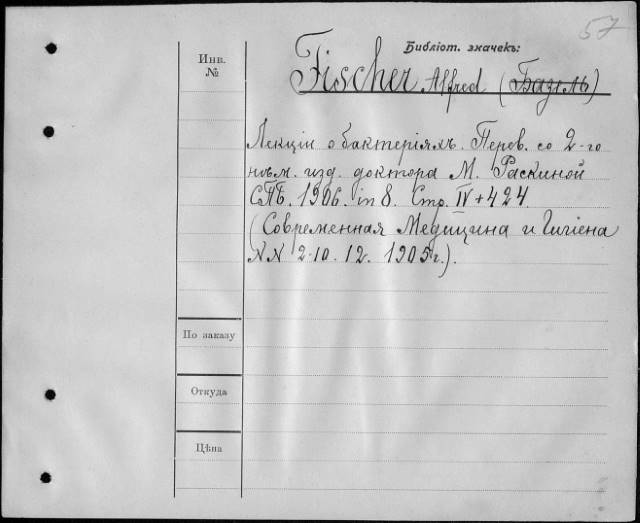 57
Библіот. значекъ:
Инв.
№
Fischer Alfred (Базель)
Лекціи о бактеріяхъ. Перев. со 2-го
нѣм. изд. доктора М. Раскиной
СПб. 1906. in 8. Стр. IV+424
(Современная Медицина и Гигіена
NN 2. 10. 12. 1905 г.).
По заказу
Откуда
Цѣна